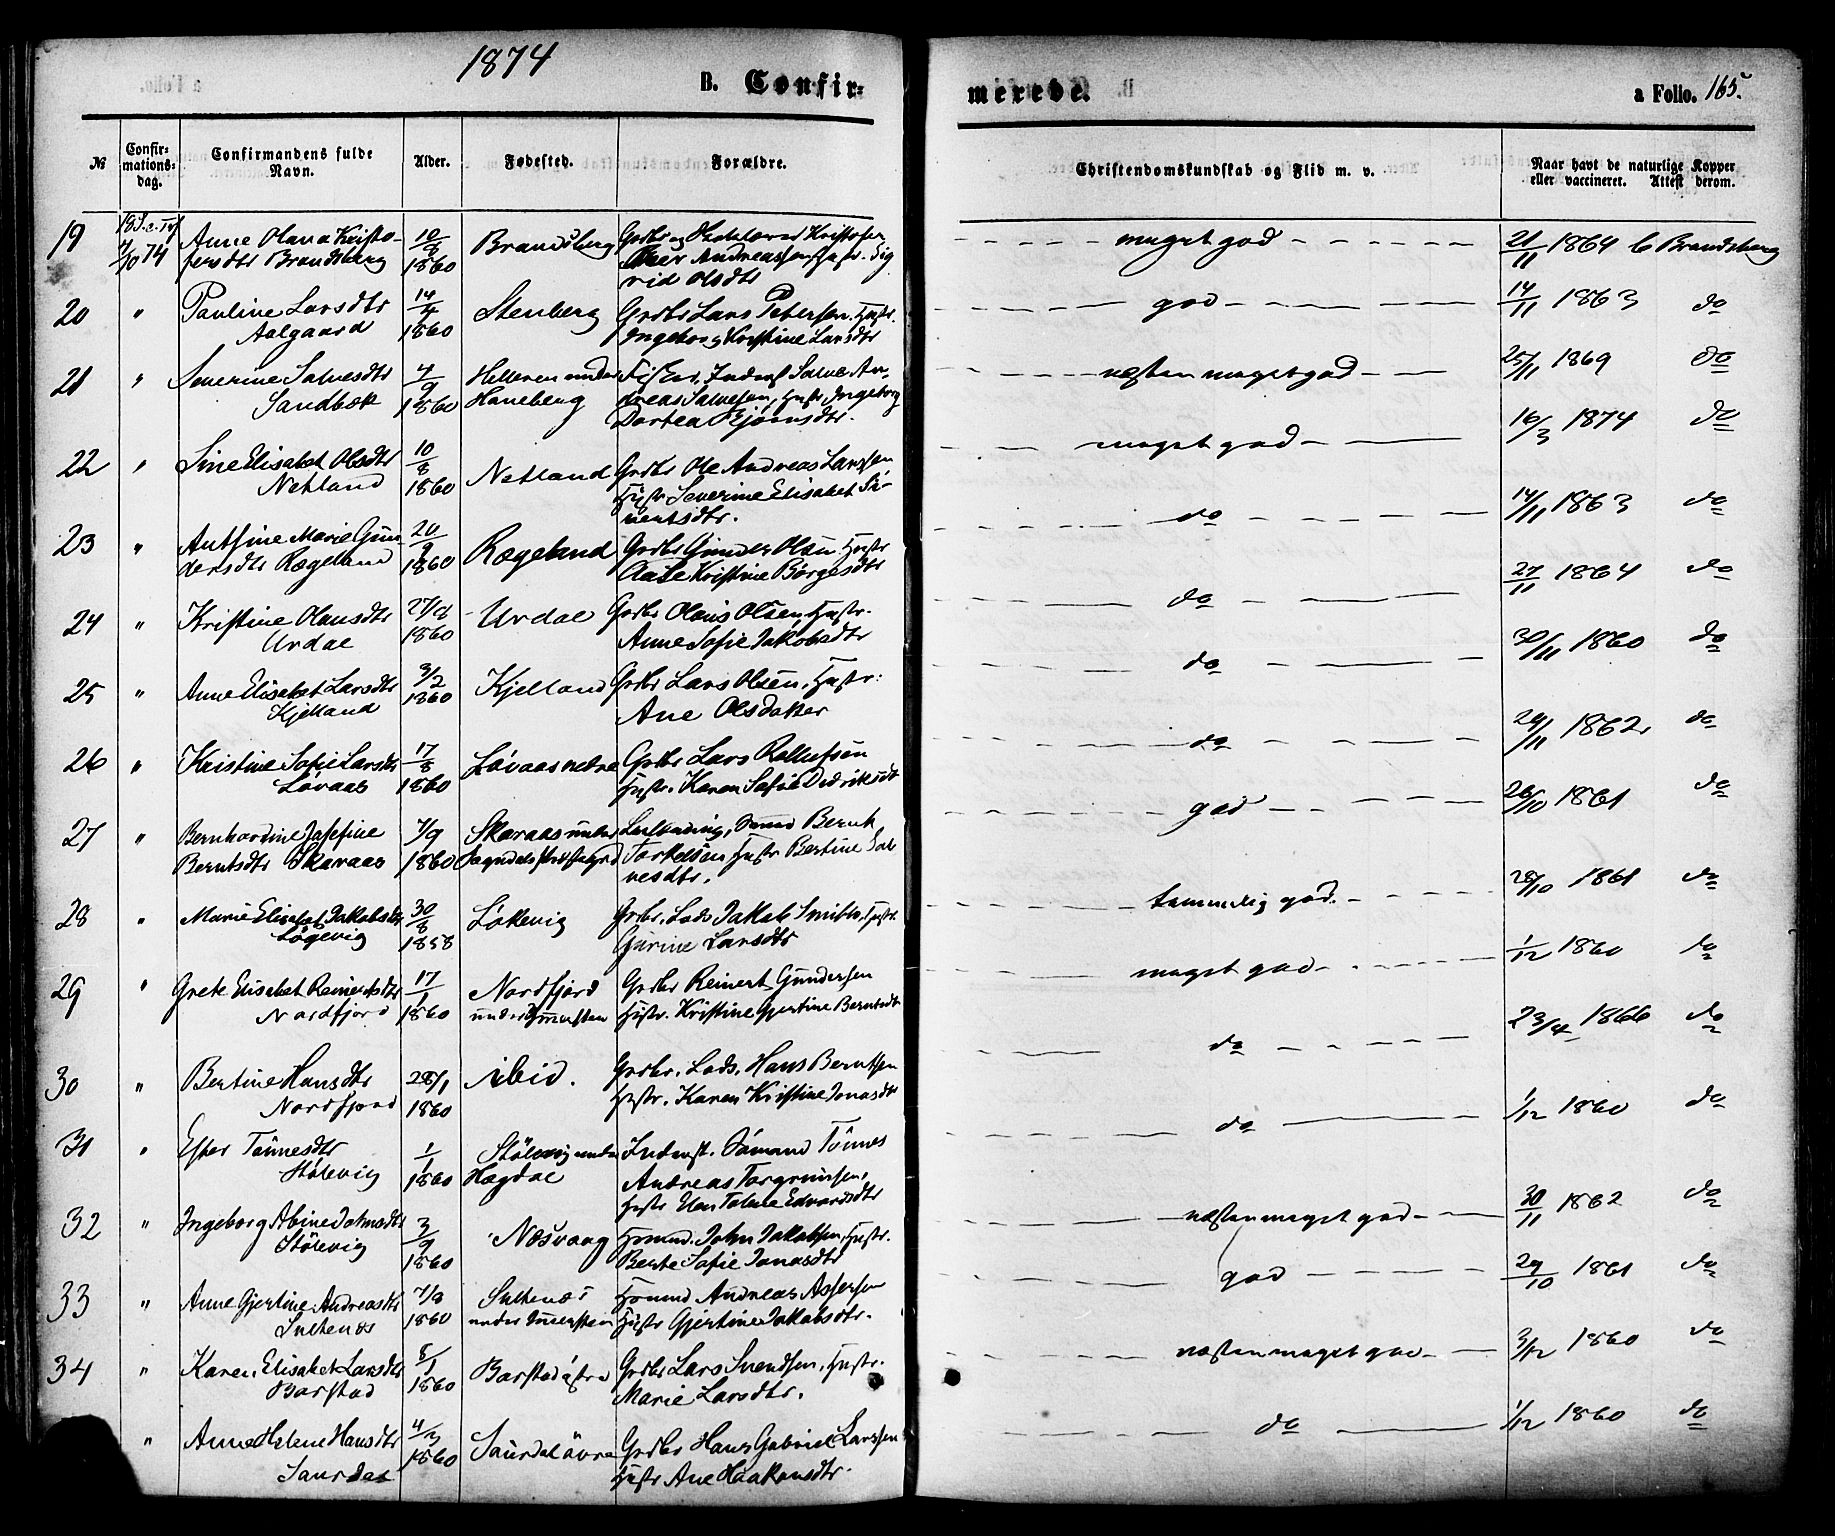 1874
B. Confir-
merede.
a Folio. 165.
№
Confir-
mations-
dag.
Confirmandens fulde
Navn.
Alder.
Fødested.
Forældre.
Christendomskundskab og Flid m. v.
Naar havt de naturlige Kopper
eller vaccineret. Attest derom.
19 4/10 74 Anne Olana Kristo- 10/8 Brandsberg
fersdtr Brandsberg 1860 Andreassen Hustr. Sig
rid Olsdtr
meget god 21/11 1864 Brandsberg
20 " Pauline Larsdtr 14/4 Stenberg Grdbr Lars Petersen. Hustr.
Aalgaard 1860 Ingeborg Kristine Larsdtr
god 14/11 1863 do
21 " Severine Salvesdtr 4/9 Helleren under Inderst Salve An-
Sandbæk 1860 Haneberg dreas Salvesen, Hustr. Ingeborg
Dortea Bjørnsdtr.
næsten meget god 25/11 1869 do
22 " Sine Elisabet Olsdtr 10/8 Netland Grdbr Ole Andreas Larssen
Netland 1860 Hustr Severine Elisabet Si-
vertsdtr.
meget god 16/3 1874 do
23 " Marie Gun 20/9 Rægeland Grdbr Gunder Olsen Hustr
dersdtr Rægeland 1860 Kristine Børgesdtr
do 14/11 1863 do
24 " Kristine Olausdtr 1860 Urdal Grdbr Olaus Olsen, Hustr.
Urdal Anne Sofie Jakobsdtr
do 27/11 1864 do
25 " Anne Elisabet Larsdtr 3/2 Kjelland Grdbr Lars Olsen, Hustr:
Kjelland 1860 Ane Olsdatter
do 30/11 1860 do
26 " Kristine Sofie Larsdtr 17/8 Løvaas nedre Grdbr Lars Rollefsen
Løvaas 1860 Hustr. Karen Sofie Didriksdt
do 29/11 1862 do
27 " Bernhardine Josefine 7/9 Skaraas under Bernt
Berntsdtr Skaraas 1860 Torkelsen Hustr Bertine Sal
vesdtr.
god 26/10 1861 do
28 " Marie Elisabet Jakobsdtr 30/8 Løkevig Grdbr. Lods Jakob Smith, Hustr.
Løgevig 1858 Gurine Larsdtr
temmelig god. 28/10 1861 do
29 " Grete Elisabet Reinertsdtr 17/1 Nordfjord Grdbr Reinert Gundersen
Nordfjord 1860 under Hustr. Kristine Gjertine Berntsdt
meget god 1/12 1860 do
30 " Bertine Hansdtr 28/1 ibid. Grdbr. Lods. Hans Berntsen
Nordfjord 1860 Hustr. Karen Kristine Jonasdtr
do 23/4 1866 do
31 " Ester Tønnesdtr 1/1 Stølevig under Inderst. Sømand Tønnes
Stølevig 1860 Hægdal Andreas Torgrimsen,
Hustr Elen Edvardsdtr
do 1/12 1860 do
32 " Ingeborg Abine Johnsdtr 3/9 Næsvaag Husmd. John Jakobsen, Hustr.
Stølevig 1860 Berte Sofie Jonasdtr
næsten meget god 30/11 1862 do
33 " Anne Gjertine Andreasdtr Sultenæs Husmd Andreas Assersen
Sultenæs 1860 under Hustr Gjertine Jakobsdtr.
god 29/10 1861 do
34 " Karen Elisabet Larsdtr 8/1 Barstad østre Grdbr Lars Svendsen, Hustr.
Barstad 1860 Marie Larsdtr.
næsten meget god 3/12 1860 do
" Anne Helene Hansdtr 4/3 Saurdal øvre Grdbr Hans Gabriel Larssen
Saurdal 1860 Hustr Ane Haakonsdtr.
do 1/12 1860 do